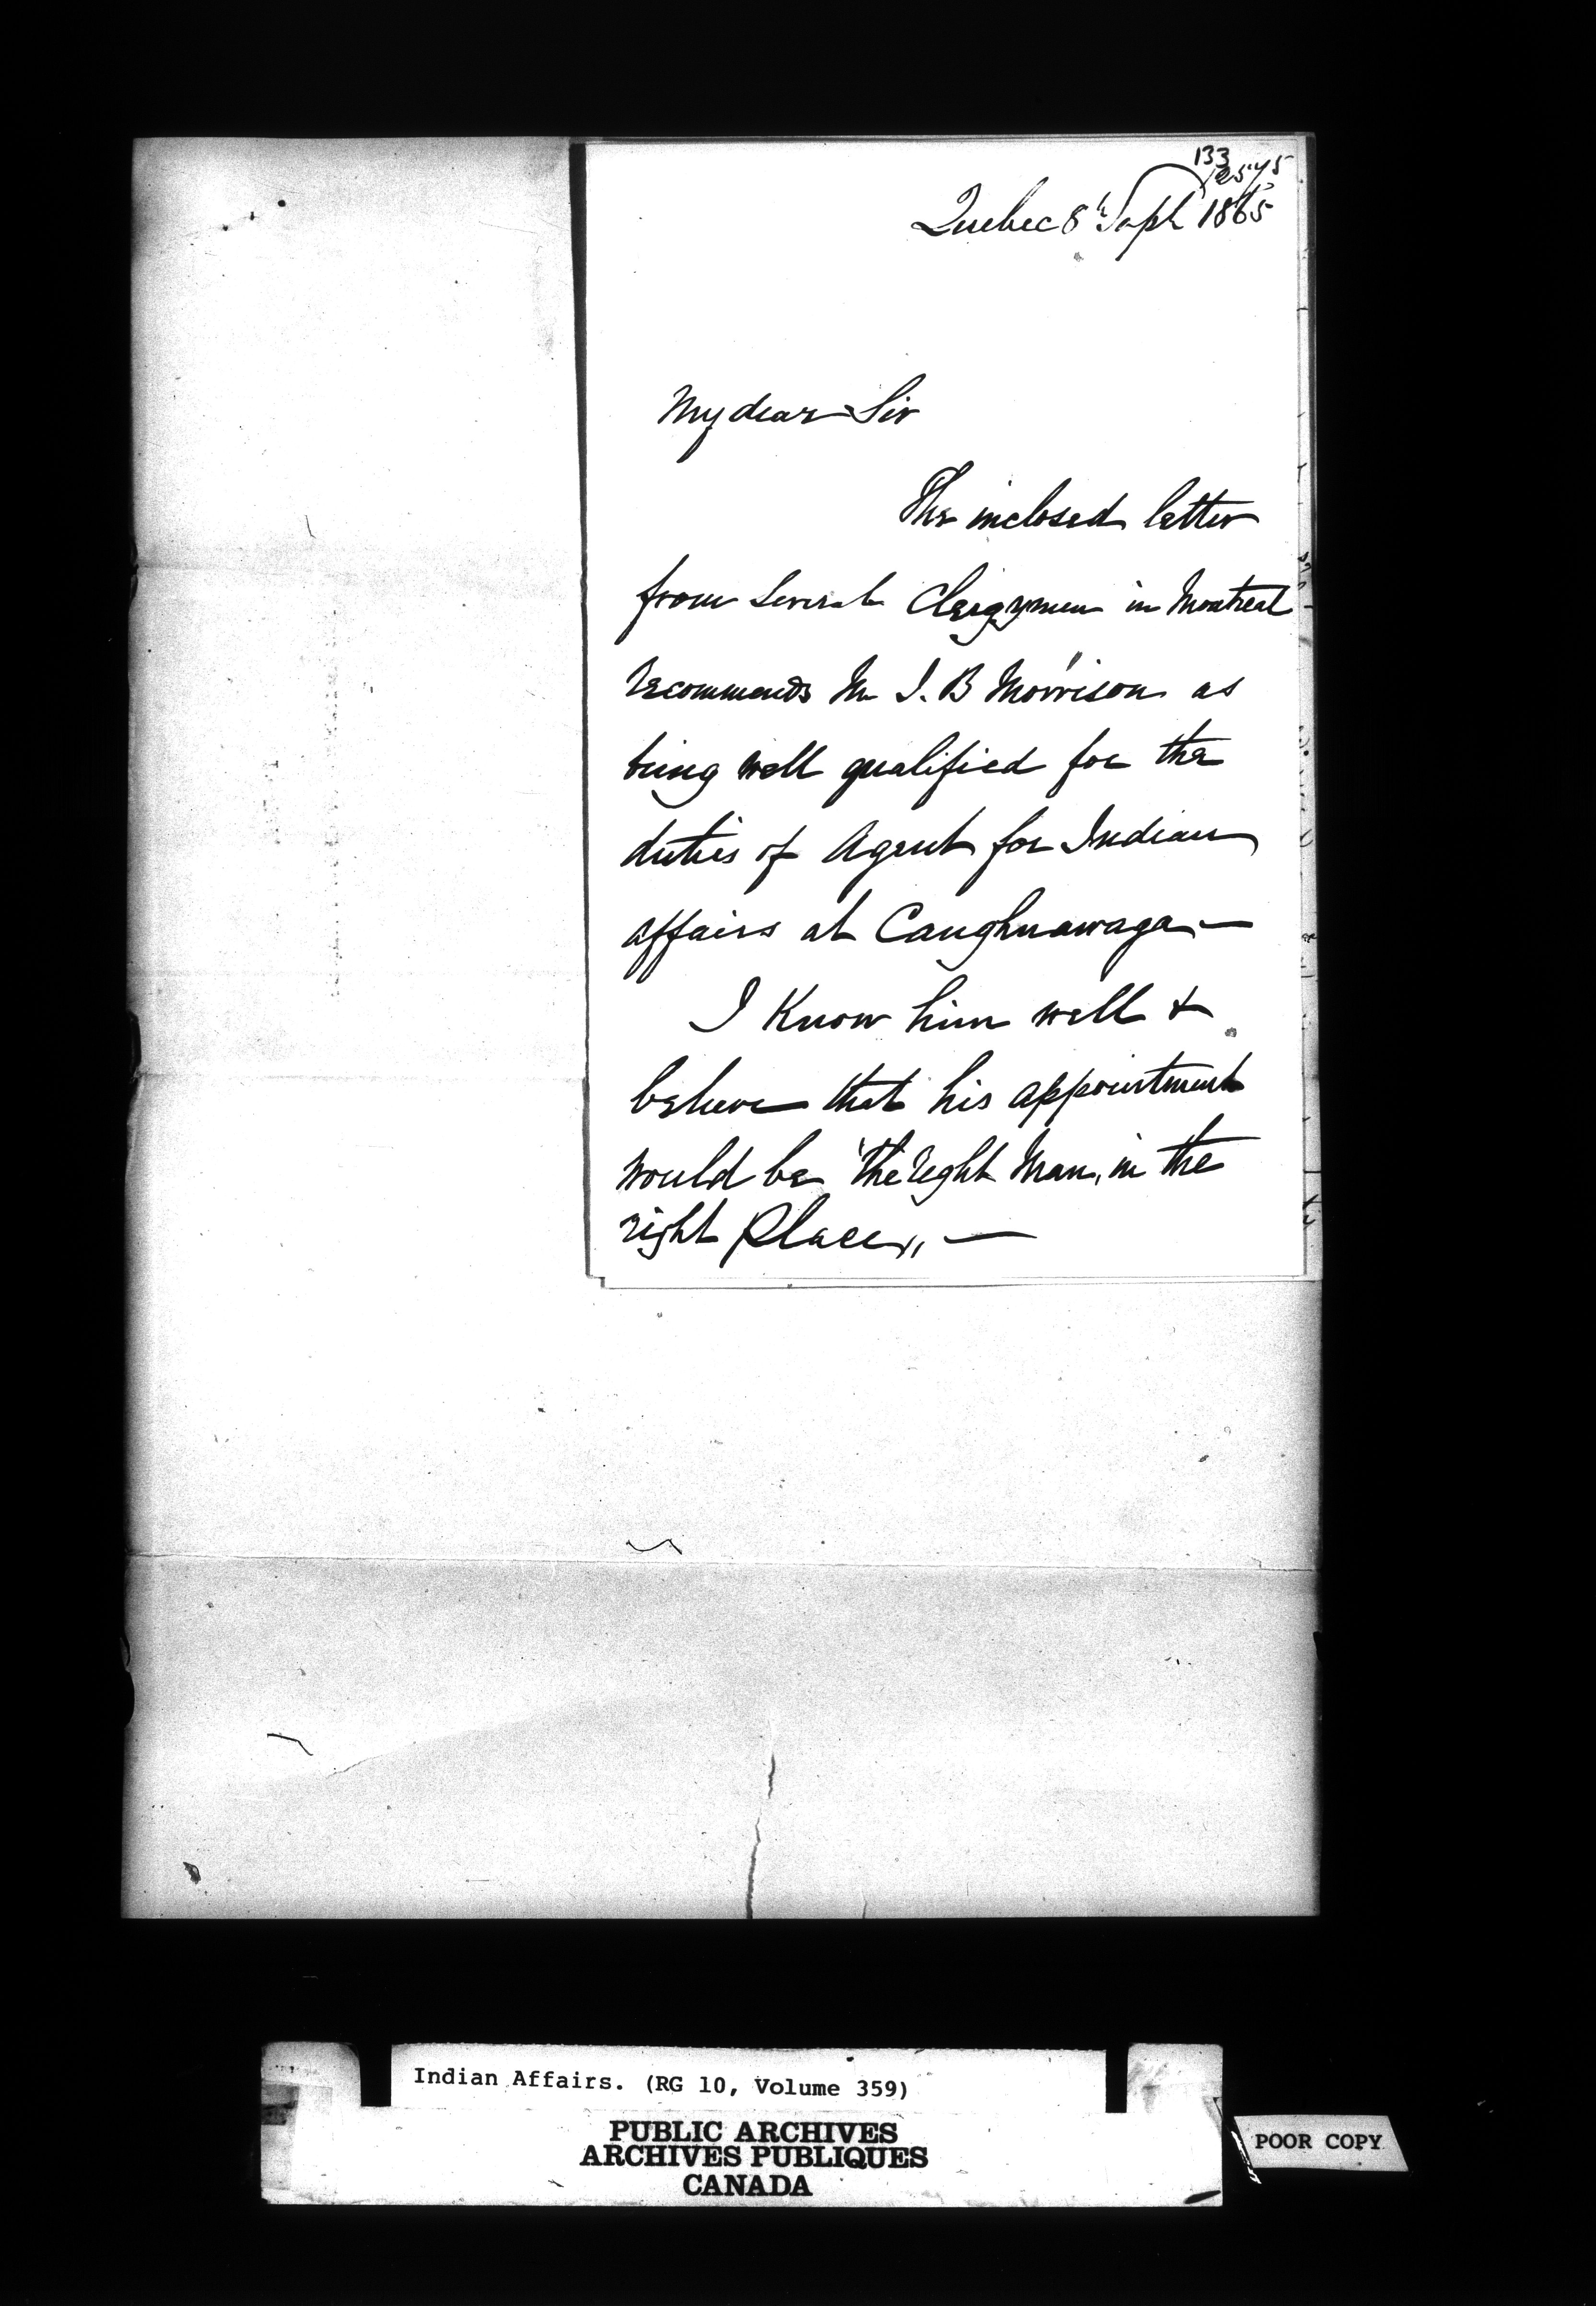 133
Quebec 8th Sept 1865
My dear Sir
The inclosed letter
from several Clergymen in Montreal
recommends Mr J. B Morrison as
being well qualified for the
duties of Agent for Indian
affairs at Caughnawaga —
I Know him well &
believe that his appointment
would be "the right Man, in the
right Place,, —
Indian Affairs. (RG 10, Volume 359)
PUBLIC ARCHIVES
ARCHIVES PUBLIQUES
CANADA
POOR COPY